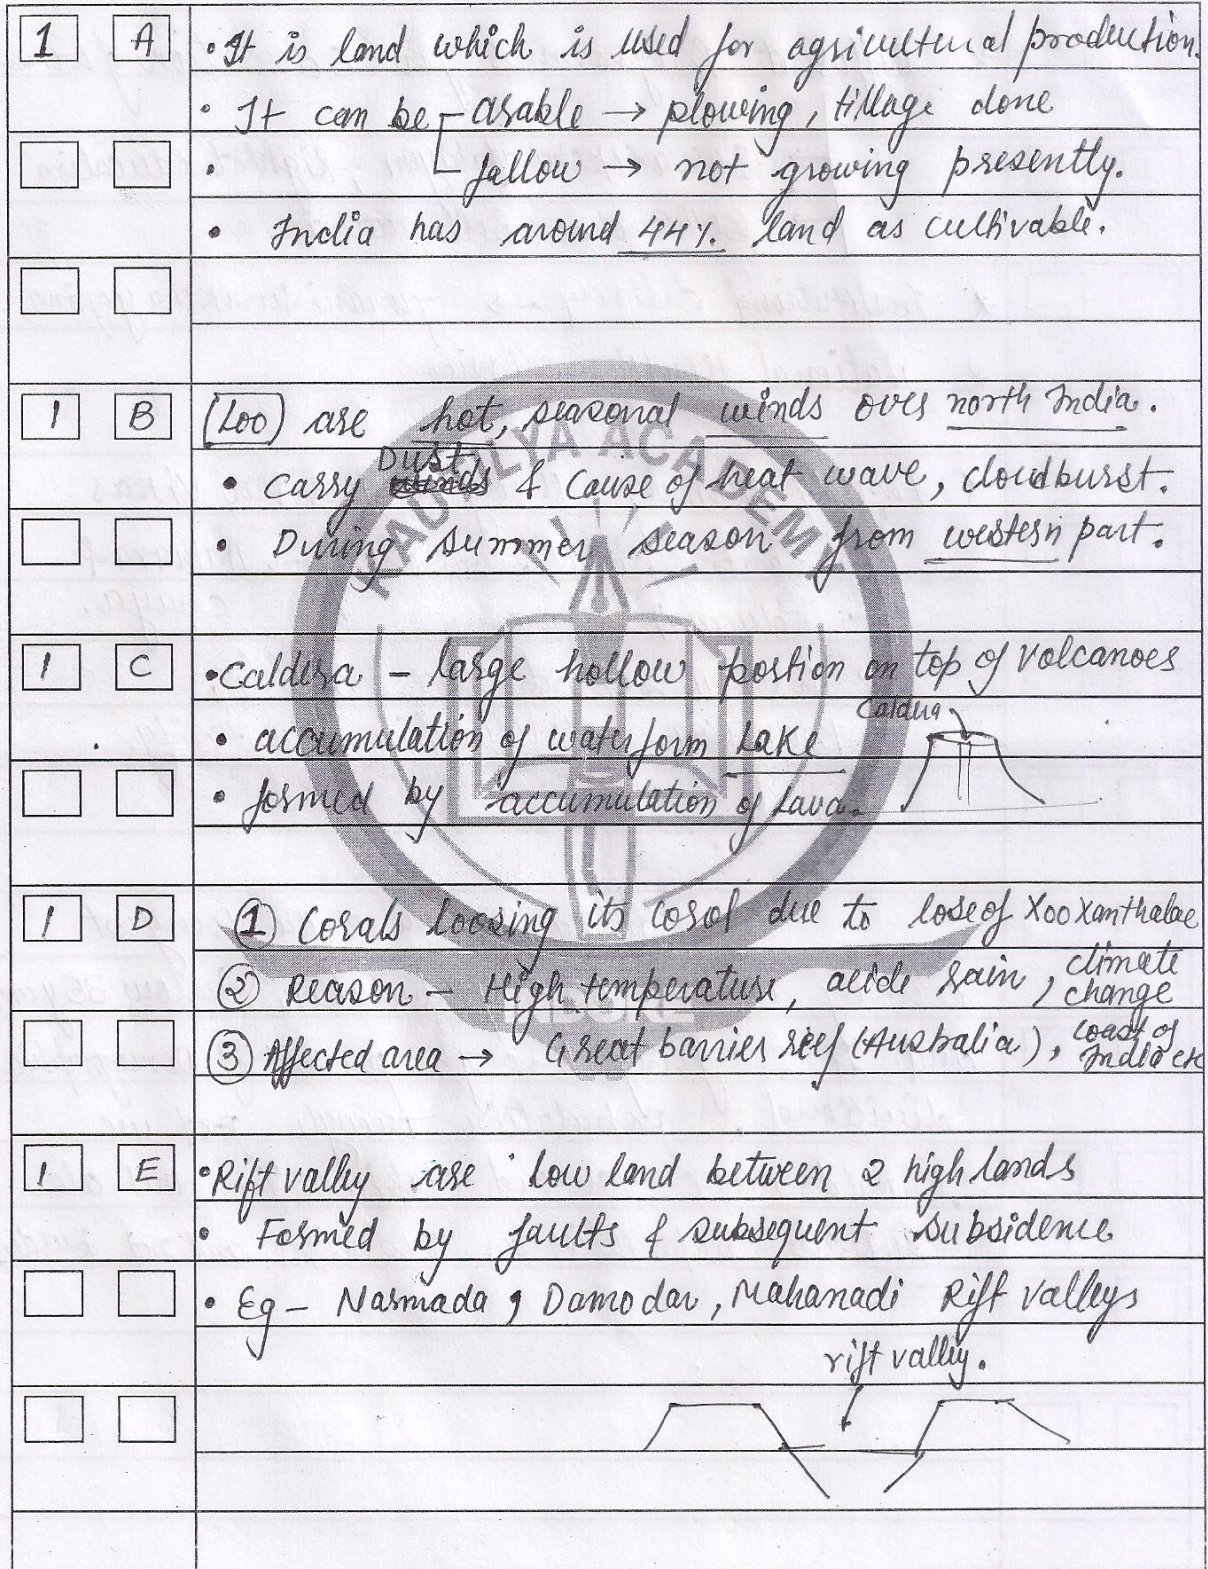 1 A • It is land which is used for agricultural production.
• It can be arable → plowing, tillage done
• fallow → not growing presently.
• India has around 44% land as cultivable.
1 B (Loo) are hot, seasonal winds over north India.
Dust
• carry winds & cause of heat wave, cloudburst.
• During summer season from western part.
1 C • Caldera - large hollow portion on top of volcanoes
Caldera
• accumulation of water form Lake
• formed by accumulation of lava.
1 D ① Corals loosing its corol due to lose of Xoo Xanthalae
② Reason - High temperature, acide rain, climate change
③ Affected area → Great barrier reef (Australia), coast of India etc
1 E • Rift valley are low land between 2 high lands
• Formed by faults & subsequent subsidence
• Eg - Narmada, Damodar, Mahanadi Rift valleys
rift valley.
KAUTILYA ACADEMY